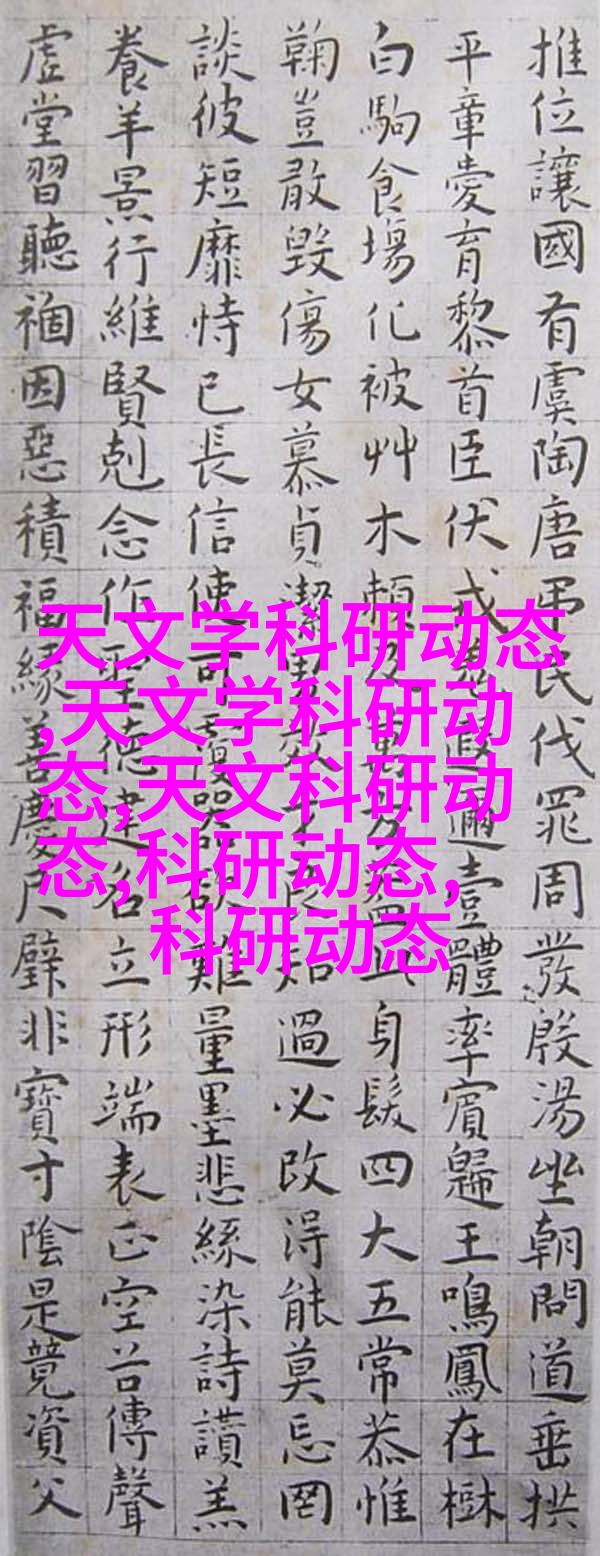 推位讓國有虞陶唐弔民伐罪周發殷湯坐朝問道垂拱
平章愛育黎首臣伏戎羌遐邇壹體率賓歸王鳴鳳在樹
白駒食場化被艸木賴及萬方蓋此身髮四大五常恭惟
鞠豈敢毀傷女慕貞潔男效才良知過必改得能莫忘罔
談彼短靡恃己長信使可覆器欲難量墨悲絲染詩讚羔
養羊景行維賢剋念作聖德建名立形端表正空谷傳聲
虛堂習聽禍因惡積福緣善慶尺璧非寶寸陰是競資父
天文学科研动态
,天文学科研动
态,天文科研动
态,科研动态,
科研动态